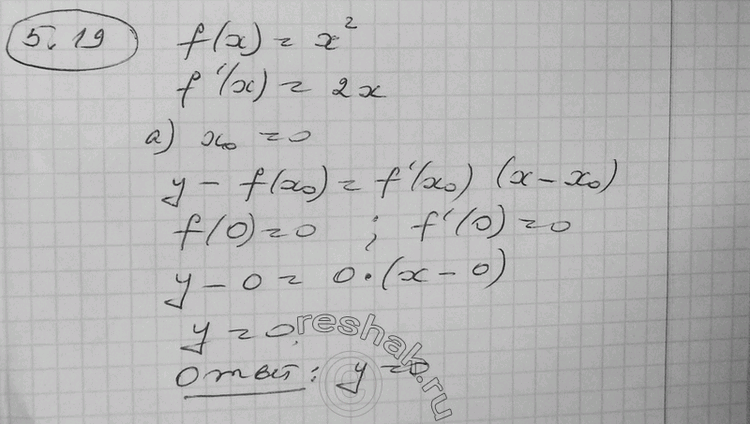 5.19
f(x) = x²
f'(x) = 2x
а) x₀ = 0
y - f(x₀) = f'(x₀) (x - x₀)
f(0) = 0 ; f'(0) = 0
y - 0 = 0·(x - 0)
y = 0.
Ответ: y = 0
reshak.ru